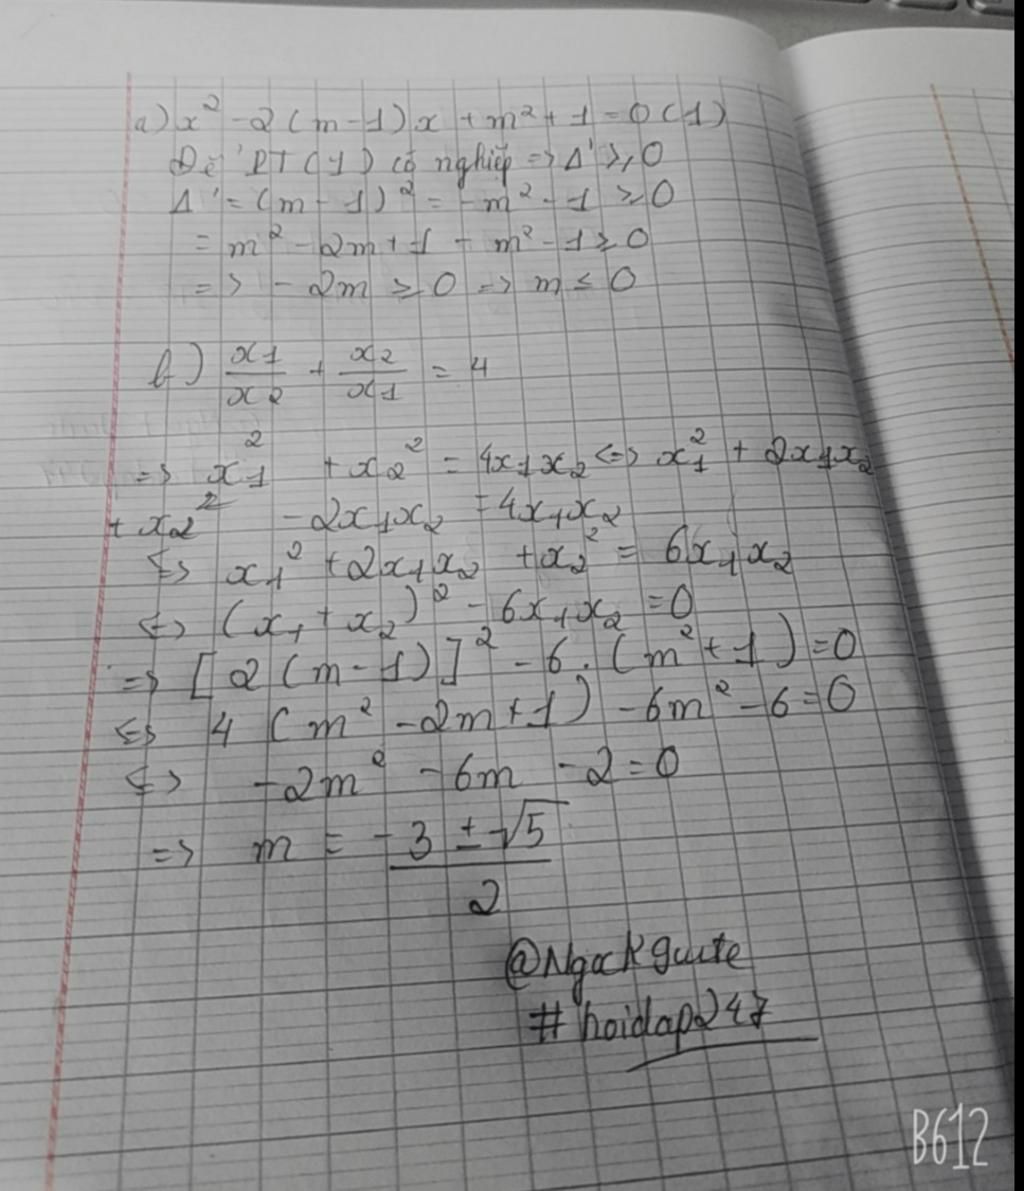 a) x² - 2(m-1)x + m² + 1 = 0 (1)
Để PT(1) có nghiệp => Δ' ≥ 0
Δ' = (m - 1)² = - m² - 1 ≥ 0
= m² - 2m + 1 - m² - 1 ≥ 0
=> - 2m ≥ 0 => m ≤ 0
b) x1/x2 + x2/x1 = 4
=> x1² + x2² = 4x1x2 <=> x1² + 2x1x2
+ x2² - 2x1x2 = 4x1x2
<=> x1² + 2x1x2 + x2² = 6x1x2
<=> (x1 + x2)² - 6x1x2 = 0
=> [2(m-1)]² - 6.(m² + 1) = 0
<=> 4(m² - 2m + 1) - 6m² - 6 = 0
<=> -2m² - 6m - 2 = 0
=> m = -3 ± √5 / 2
@Ngockguite
#hoidap247
B612